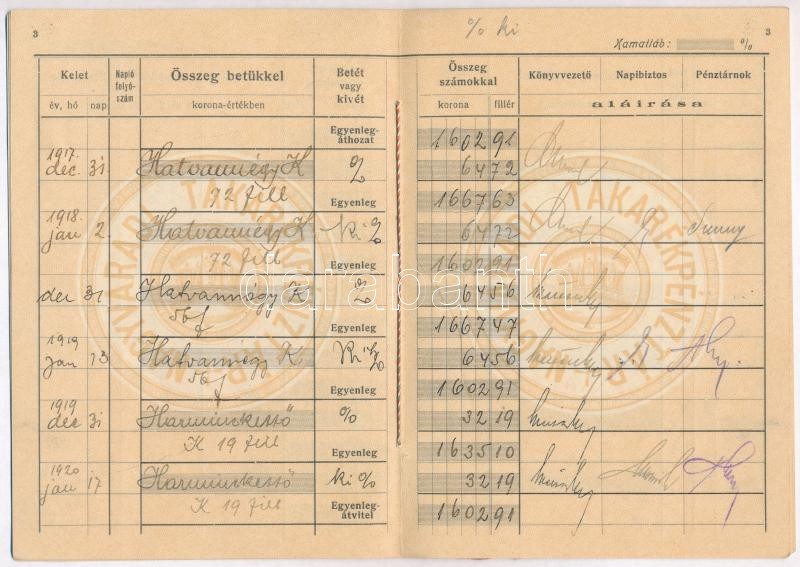 3
% ki
3
Kamatláb: %
Kelet
év, hó nap
Napló folyó-szám
Összeg betükkel
korona-értékben
Betét vagy kivét
Összeg számokkal
korona fillér
Könyvvezető Napibiztos Pénztárnok
aláírása
Egyenleg-áthozat 1602 91
1917. dec. 31 Hatvannégy K % 64 72
72 fill Egyenleg 1667 63
1918. jan 2. Hatvannégy K ki % 64 72
72 fill Egyenleg 1602 91
dec 31 Hatvannégy K % 64 56
56 f Egyenleg 1667 47
1919 jan 13 Hatvannégy K. Ki % 64 56
56 f Egyenleg 1602 91
1919 dec 31 Harminckettő % 32 19
K 19 fill Egyenleg 1635 10
1920 jan 17 Harminckettő ki % 32 19
K 19 fill Egyenleg-átvitel 1602 91
TAKARÉKPÉNZTÁR
darabanth